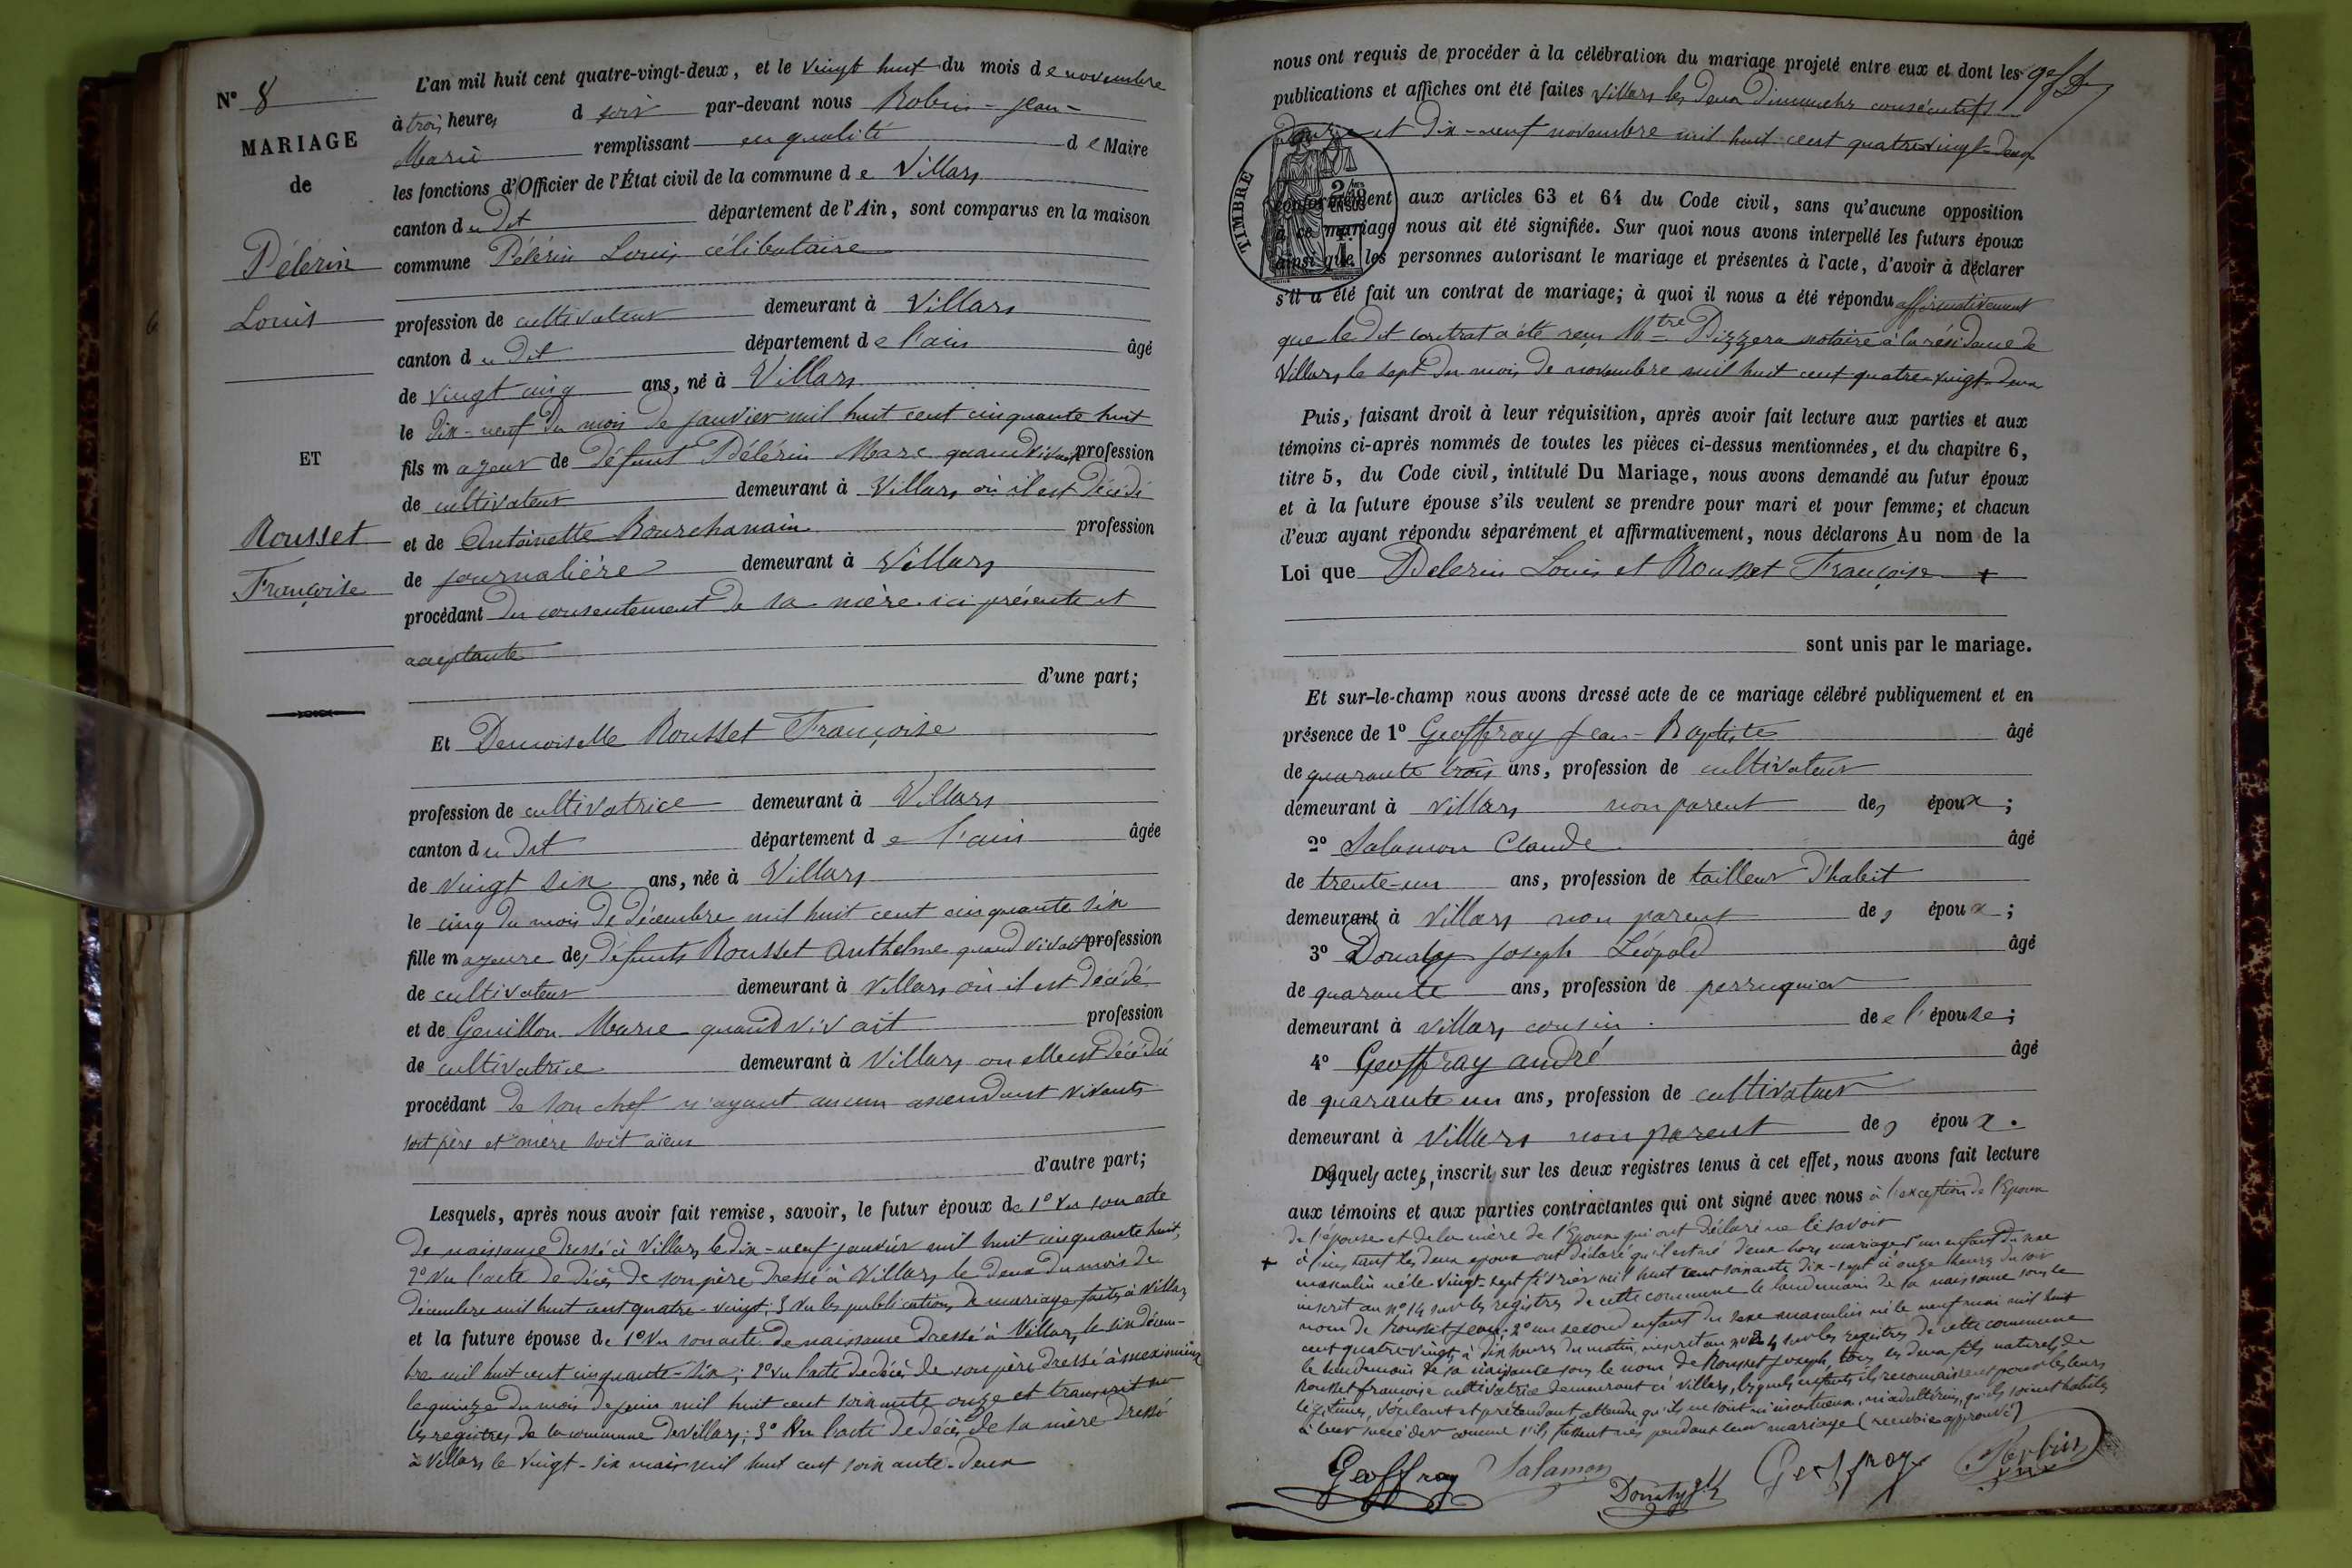 N° 8
MARIAGE
de
Pélérin
Louis
ET
Rousset
Françoise
L'an mil huit cent quatre-vingt-deux, et le vingt huit du mois de novembre
à trois heures d soir par-devant nous Robin - Jean -
Marie remplissant en qualité de Maire
les fonctions d'Officier de l'État civil de la commune de Villars
canton du Dit département de l'Ain, sont comparus en la maison
commune Pélérin Louis, célibataire
profession de cultivateur demeurant à Villars
canton du Dit département de l'ain âgé
de vingt cinq ans, né à Villars
le Dix-neuf du mois de janvier mil huit cent cinquante huit
fils majeur de défunt Pélérin Marc quand vivait profession
de cultivateur demeurant à Villars où il est Décédé
et de Antoinette Bourchanain profession
de journalière demeurant à Villars
procédant du consentement de sa mère ici présente et
acceptante
d'une part;
Et Demoiselle Rousset Françoise
profession de cultivatrice demeurant à Villars
canton du Dit département de l'ain âgée
de vingt six ans, née à Villars
le cinq du mois de Décembre mil huit cent cinquante six
fille majeure des défunts Rousset Anthelme quand vivait profession
de cultivateur demeurant à Villars où il est décédé
et de Genillon Marie quand vivait profession
de cultivatrice demeurant à Villars ou elle est Décédée
procédant de son chef n'ayant aucun ascendant vivants
soit père et mère soit aïeux
d'autre part;
Lesquels, après nous avoir fait remise, savoir, le futur époux de 1° Vu son acte
de naissance Dressé à Villars le dix-neuf janvier mil huit cinquante huit,
2° Vu l'acte de décès de son père Dressé à Villars le deux du mois de
décembre mil huit cent quatre-vingt; 3 Vu les publications de mariage faites à Villars
et la future épouse de 1° Vu son acte de naissance Dressé à Villars, le six décem-
bre mil huit cent cinquante-six; 2° vu l'acte de décès de son père dressé à Meximieux
le quinze du mois de juin mil huit cent soixante onze et transcrit sur
les registres de la commune de Villars; 3° Vu l'acte de décès de sa mère Dressé
à Villars le vingt-six mars mil huit cent soixante-deux
nous ont requis de procéder à la célébration du mariage projeté entre eux et dont les
publications et affiches ont été faites Villars les deux Dimanches consécutifs
Douze et Dix-neuf novembre mil huit cent quatre vingt-deux
TIMBRE
conformément aux articles 63 et 64 du Code civil, sans qu'aucune opposition
à ce mariage nous ait été signifiée. Sur quoi nous avons interpellé les futurs époux
ainsi que les personnes autorisant le mariage et présentes à l'acte, d'avoir à déclarer
s'il a été fait un contrat de mariage; à quoi il nous a été répondu affirmativement
que le dit contrat a été reçu Mtre Pizzera notaire à la résidance de
Villars, le sept du mois de novembre mil huit cent quatre-vingt-deux
Puis, faisant droit à leur réquisition, après avoir fait lecture aux parties et aux
témoins ci-après nommés de toutes les pièces ci-dessus mentionnées, et du chapitre 6,
titre 5, du Code civil, intitulé Du Mariage, nous avons demandé au futur époux
et à la future épouse s'ils veulent se prendre pour mari et pour femme; et chacun
d'eux ayant répondu séparément et affirmativement, nous déclarons Au nom de la
Loi que Pelerin Louis et Rousset Françoise +
sont unis par le mariage.
Et sur-le-champ nous avons dressé acte de ce mariage célébré publiquement et en
présence de 1° Geoffray Jean-Baptiste âgé
de quarante trois ans, profession de cultivateur
demeurant à Villars non parent des époux;
2° Salamon Claude âgé
de trente-un ans, profession de tailleur d'habit
demeurant à Villars non parent des époux;
3° Donaty Joseph Léopold âgé
de quarante ans, profession de perruquier
demeurant à Villars cousin de l'épouse;
4° Geoffray andré âgé
de quarante un ans, profession de cultivateur
demeurant à Villars non parent des époux.
Desquels actes, inscrit sur les deux registres tenus à cet effet, nous avons fait lecture
aux témoins et aux parties contractantes qui ont signé avec nous à l'exception de l'Epoux
de l'épouse et de la mère de l'Epoux qui ont déclaré ne le savoir
+ à l'instant les deux époux ont déclaré qu'il est né d'eux hors mariage 1° un enfant du sexe
masculin né le vingt-sept février mil huit cent soixante dix-sept à onze heures du soir
inscrit au n° 14 sur les registres de cette commune le lendemain de sa naissance sous le
nom de Rousset Jean; 2° un second enfant du sexe masculin né le neuf mai mil huit
cent quatre vingt à dix heures du matin, inscrit au n° 24 sur les registres de cette commune
le lendemain de sa naissance sous le nom de Rousset Joseph, tous les deux fils naturels de
Rousset françoise cultivatrice demeurant à Villars, lesquels enfants ils reconnaissent pour les leurs
légitimes, voulant et prétendant, attendu qu'ils ne sont ni incestueux, ni adultérins, qu'ils soient habiles
à leur succéder comme s'ils fussent nés pendant leur mariage (renvoi approuvé)
Geoffray Salamon Donaty Geoffray Robin